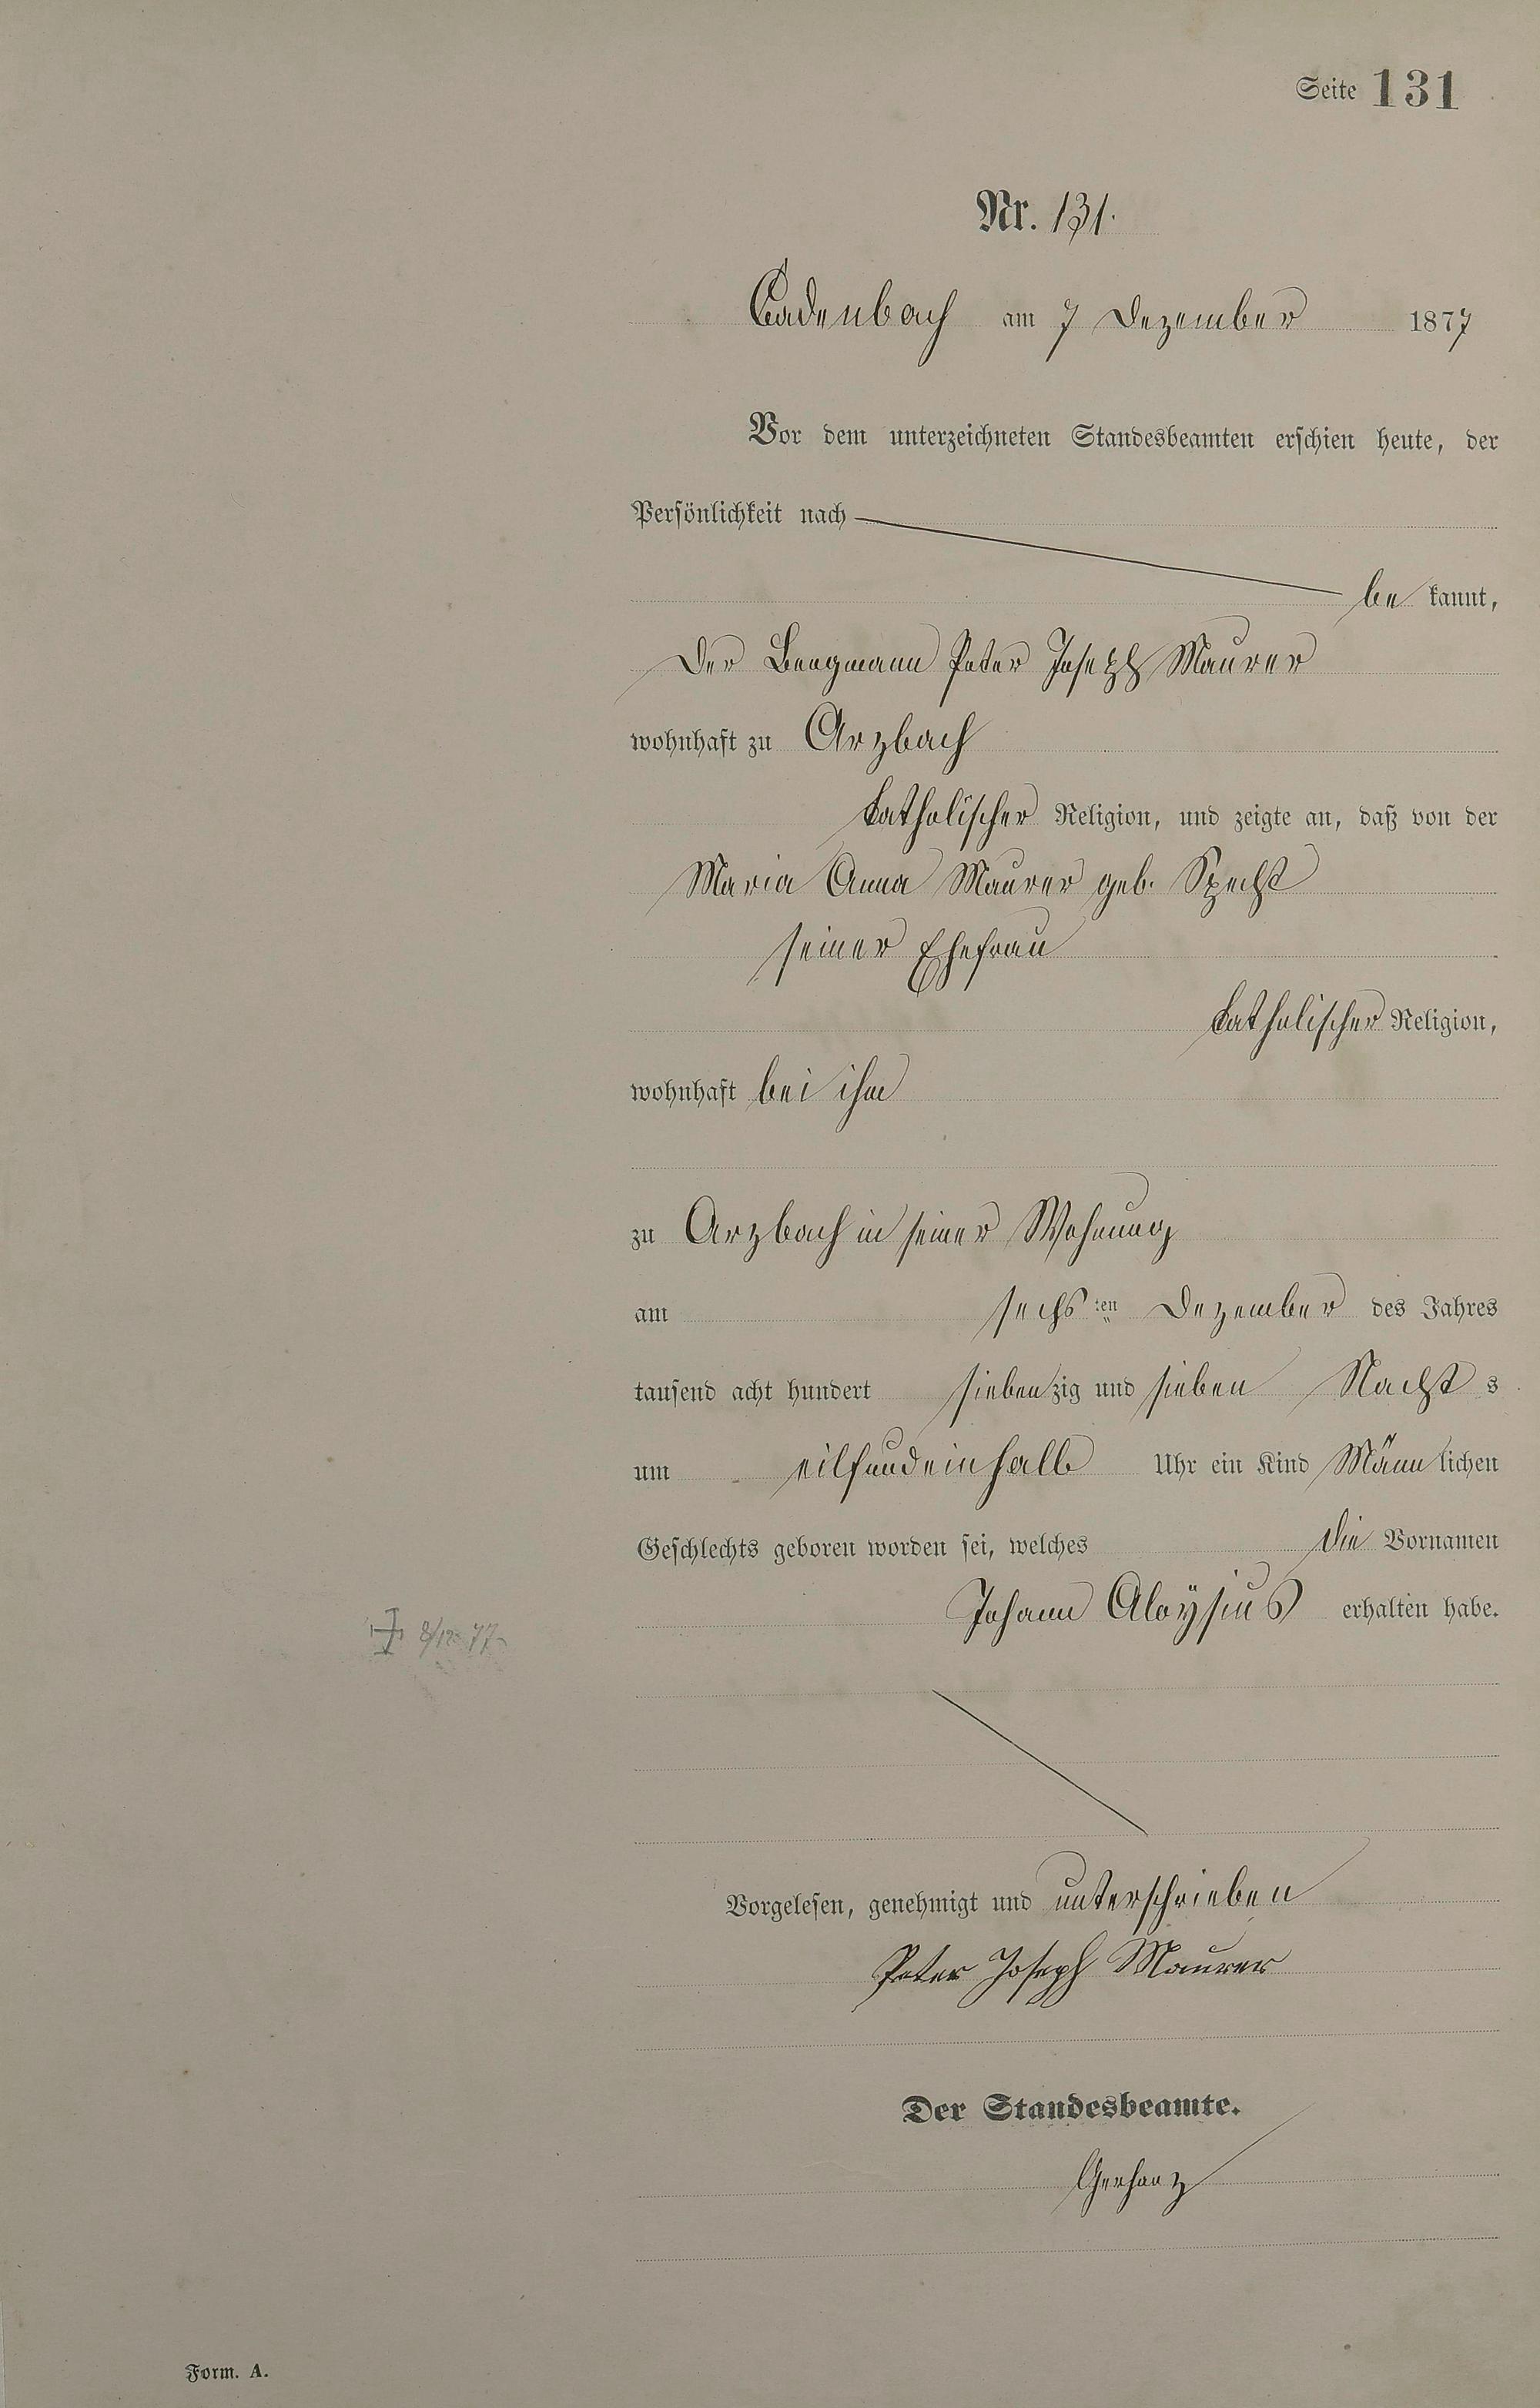 Seite 131
Nr. 131.
Cadenbach am 7 Dezember 1877
Vor dem unterzeichneten Standesbeamten erschien heute, der
Persönlichkeit nach
be kannt,
Der Bergmann Peter Joseph Maurer
wohnhaft zu Arzbach
katholischer Religion, und zeigte an, daß von der
Maria Anna Maurer geb. Specht
seiner Ehefrau
katholischer Religion,
wohnhaft bei ihm
zu Arzbach in seiner Wohnung
am sechs ten Dezember des Jahres
tausend acht hundert siebenzig und sieben Nacht s
um eilfundeinhalb Uhr ein Kind Männlichen
Geschlechts geboren worden sei, welches die Vornamen
Johann Aloysius erhalten habe.
8/12 77
Vorgelesen, genehmigt und unterschrieben
Peter Joseph Maurer
Der Standesbeamte.
Gerharz
Form. A.